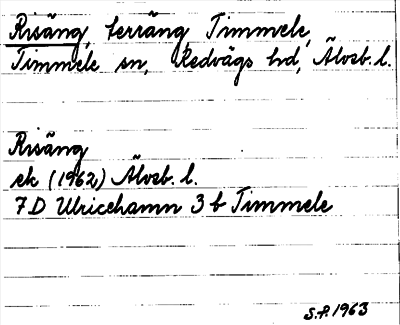 Risäng, terräng Timmele,
Timmele sn, Redvägs hd, Älvsb. l.
Risäng
ek (1962) Älvsb. l.
7D Ulricehamn 3 b Timmele
S.P. 1963